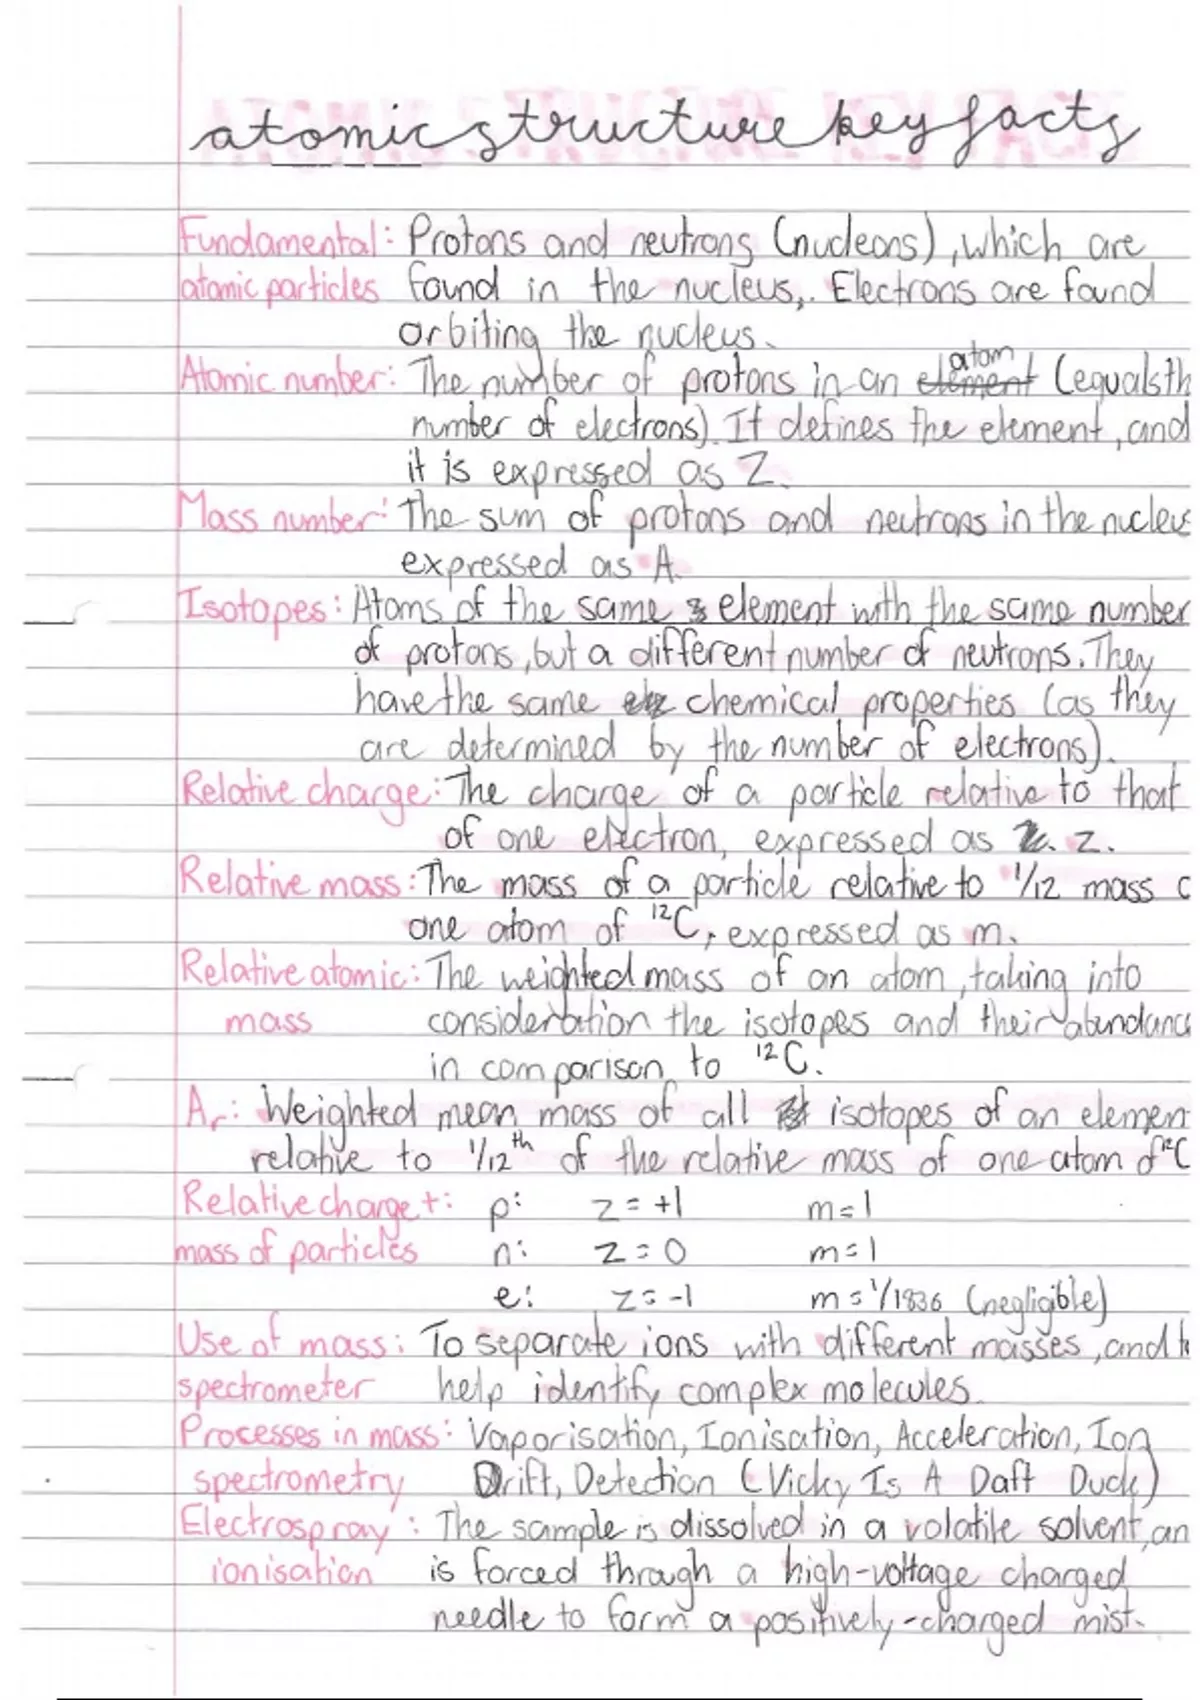 atomic structure key facts
Fundamental: Protons and neutrons (nucleons), which are
atomic particles found in the nucleus,. Electrons are found
orbiting the nucleus.
atom
Atomic number: The number of protons in an element (equals th
number of electrons). It defines the element, and
it is expressed as Z.
Mass number: The sum of protons and neutrons in the nucleus
expressed as A.
Isotopes: Atoms of the same element with the same number
of protons, but a different number of neutrons. They
have the same chemical properties (as they
are determined by the number of electrons).
Relative charge: The charge of a particle relative to that
of one electron, expressed as z.
Relative mass: The mass of a particle relative to 1/12 mass
one atom of ¹²C, expressed as m.
Relative atomic: The weighted mass of an atom, taking into
mass consideration the isotopes and their abundanc
in comparison to ¹²C.
Ar: Weighted mean mass of all isotopes of an elemen
relative to 1/12th of the relative mass of one atom of ¹²C
Relative charge +: p: z = +1 m = 1
mass of particles n: z = 0 m = 1
e: z = -1 m = 1/1836 (negligible)
Use of mass: To separate ions with different masses, and t
spectrometer help identify complex molecules.
Processes in mass: Vaporisation, Ionisation, Acceleration, Ion
spectrometry Drift, Detection (Vicky Is A Daft Duck)
Electrospray: The sample is dissolved in a volatile solvent, an
ionisation is forced through a high-voltage charged
needle to form a positively-charged mist.